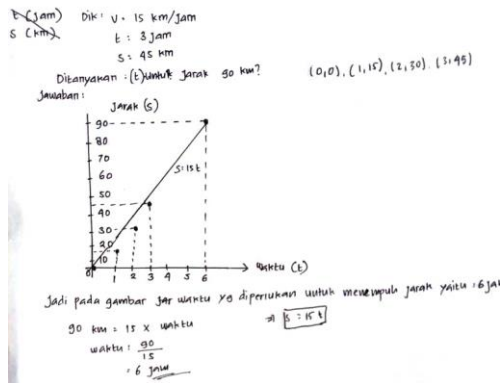 t (jam)
s (km)
Dik: v = 15 km/jam
t = 3 jam
s = 45 km
Ditanyakan = (t) untuk jarak 90 km?
(0,0), (1,15), (2,30), (3,45)
Jawaban:
Jarak (s)
90
80
70
60
50
40
30
20
10
0
s = 15t
1 2 3 4 5 6
waktu (t)
Jadi pada gambar jar waktu yg diperlukan untuk menempuh jarak yaitu = 6 jam
90 km = 15 x waktu
⇒ s = 15 t
waktu = 90/15
= 6 jam